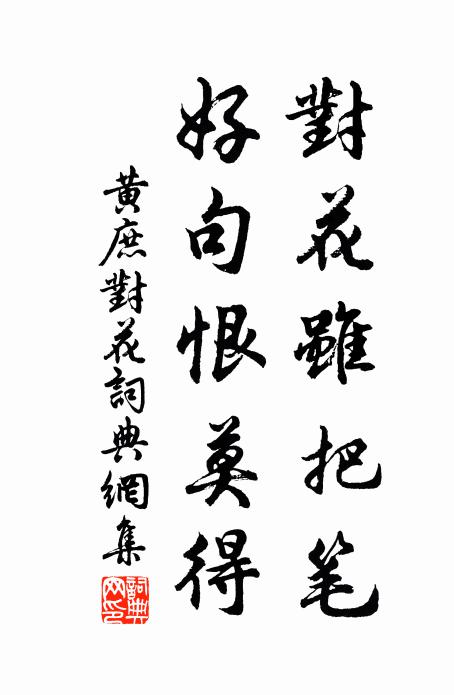 對花雖把笔
好句恨莫得
黄庶對花詞典網集
詞典网印